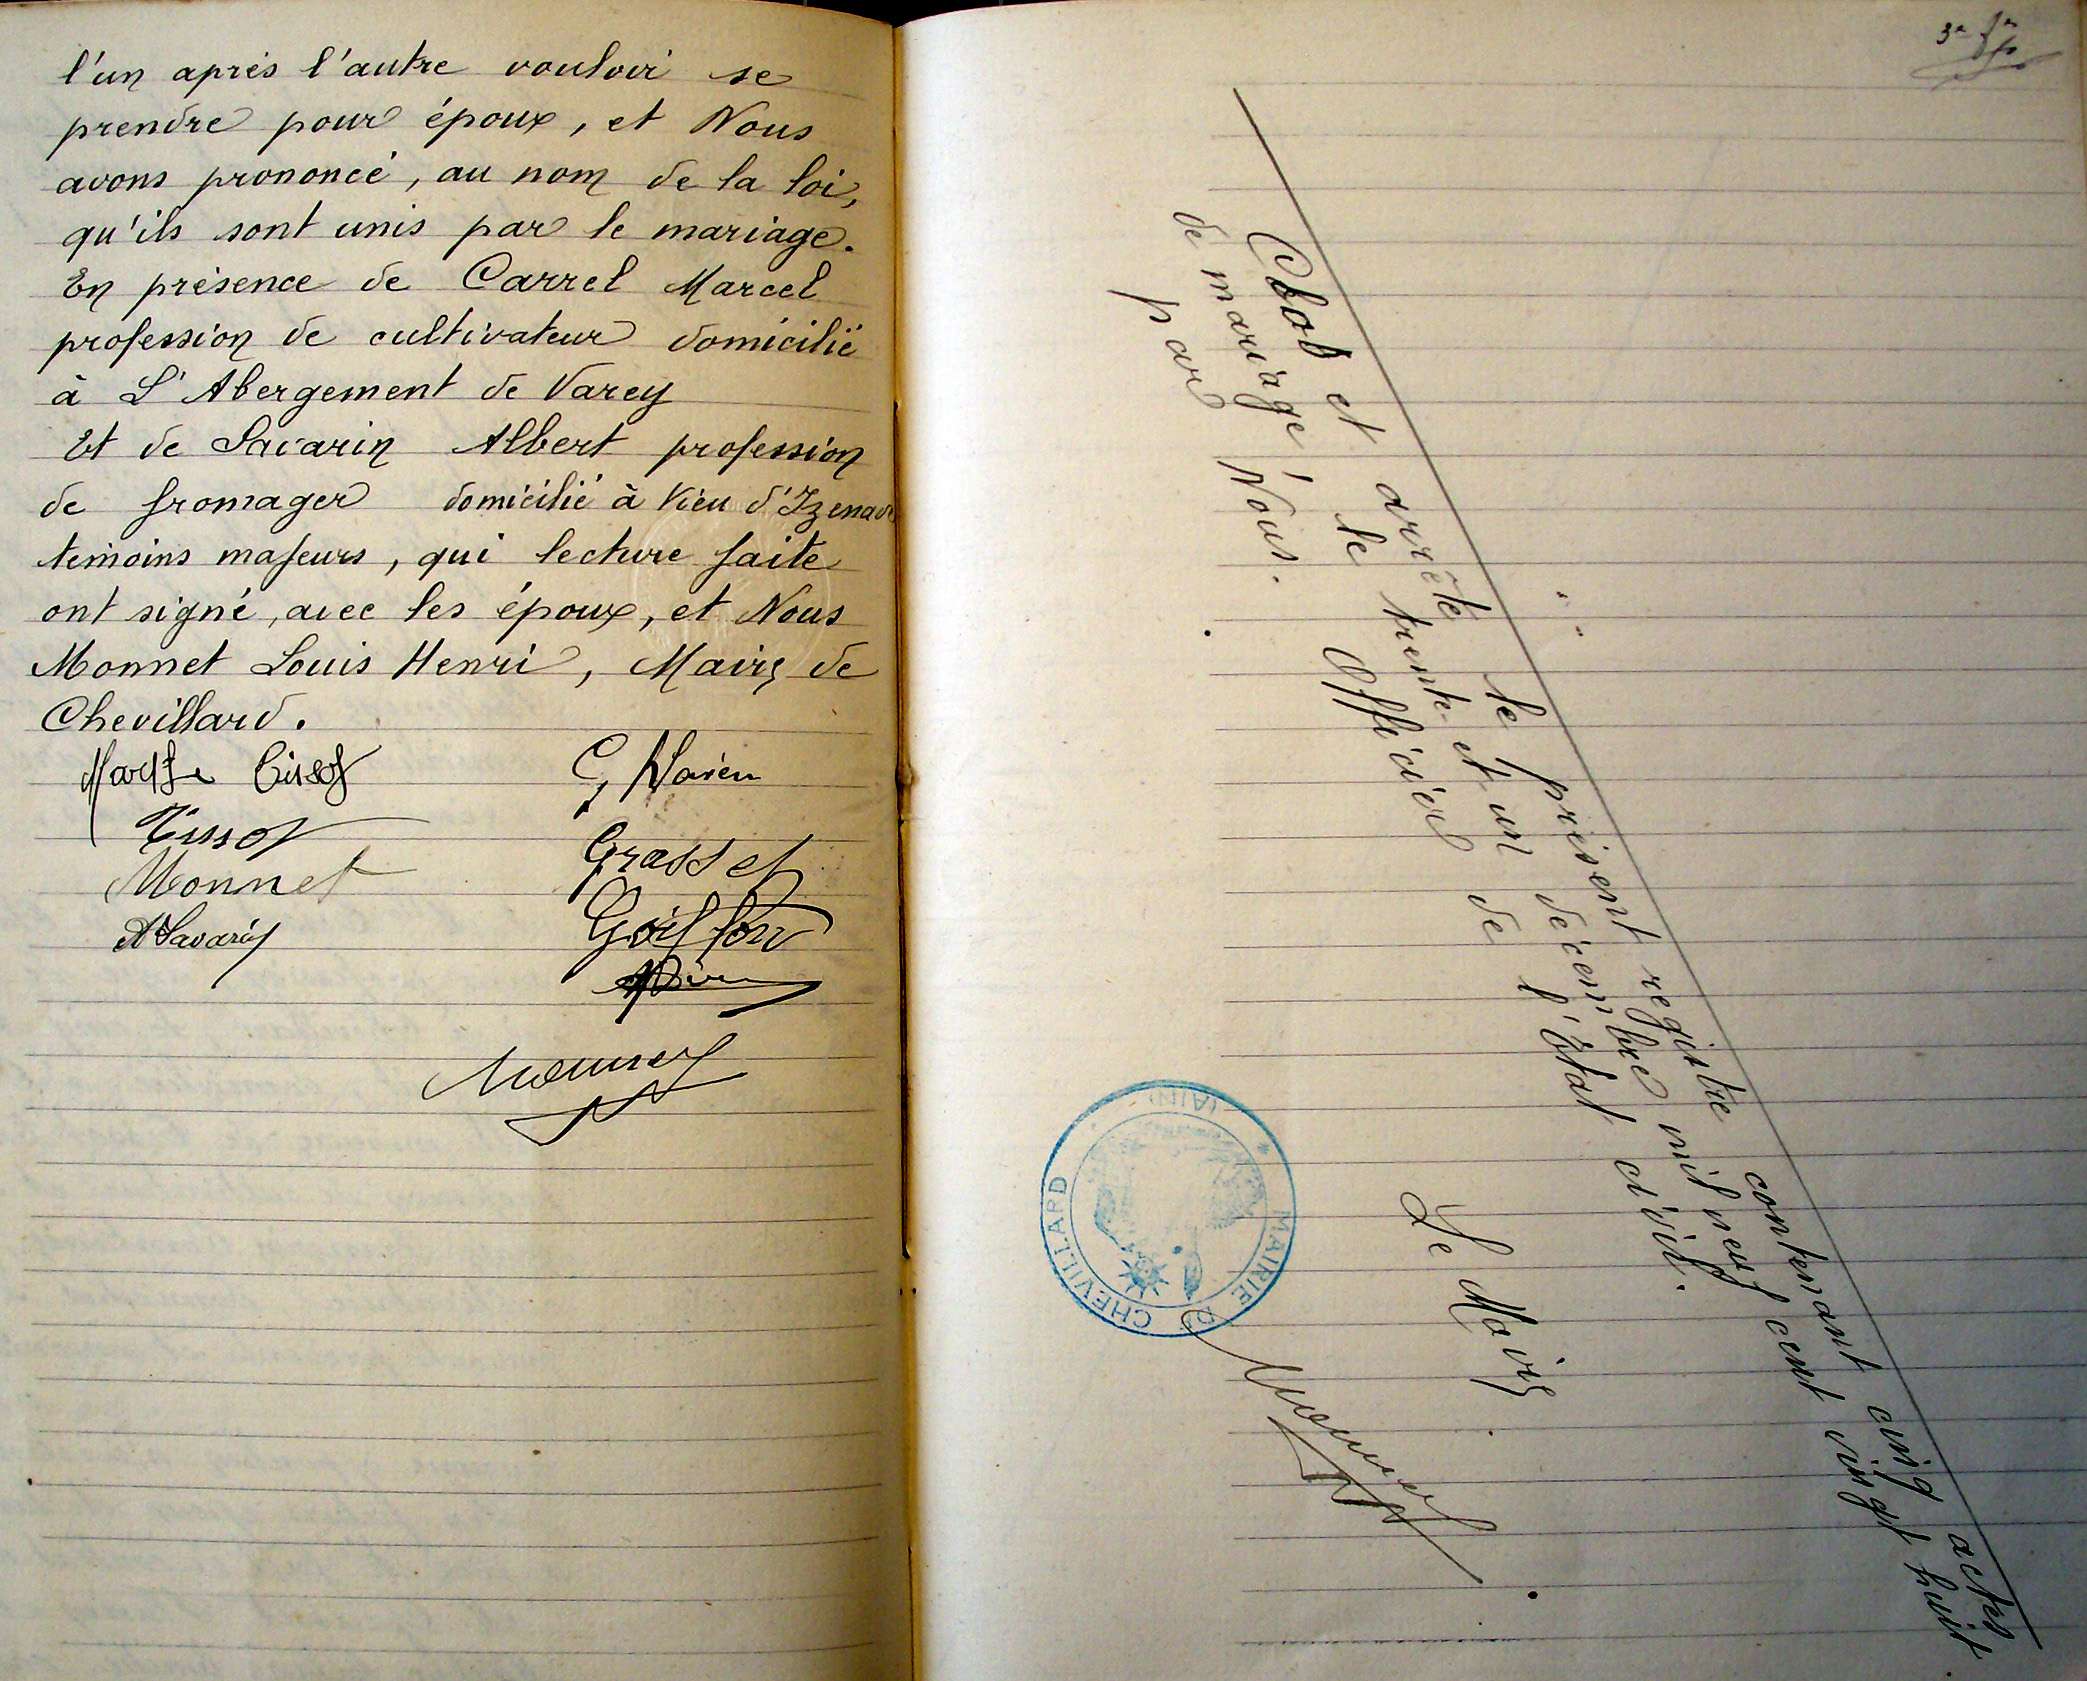 l'un après l'autre vouloir se
prendre pour époux, et Nous
avons prononcé, au nom de la loi,
qu'ils sont unis par le mariage.
En présence de Carrel Marcel
profession de cultivateur domicilié
à L'Abergement de Varey
Et de Savarin Albert profession
de fromager domicilié à Vieu d'Izenave
témoins majeurs, qui lecture faite
ont signé, avec les époux, et Nous
Monnet Louis Henri, Maire de
Chevillard.
Marthe Tissot
Tissot
Monnet
A Savarin
Grasset
Goiffon
Monnet
Clos et arrêté le présent registre contenant cinq actes
de mariage, le trente-et-un décembre mil neuf cent vingt huit
par Nous. Officier de l'Etat civil.
Le Maire
MAIRIE DE CHEVILLARD
(AIN)
Monnet